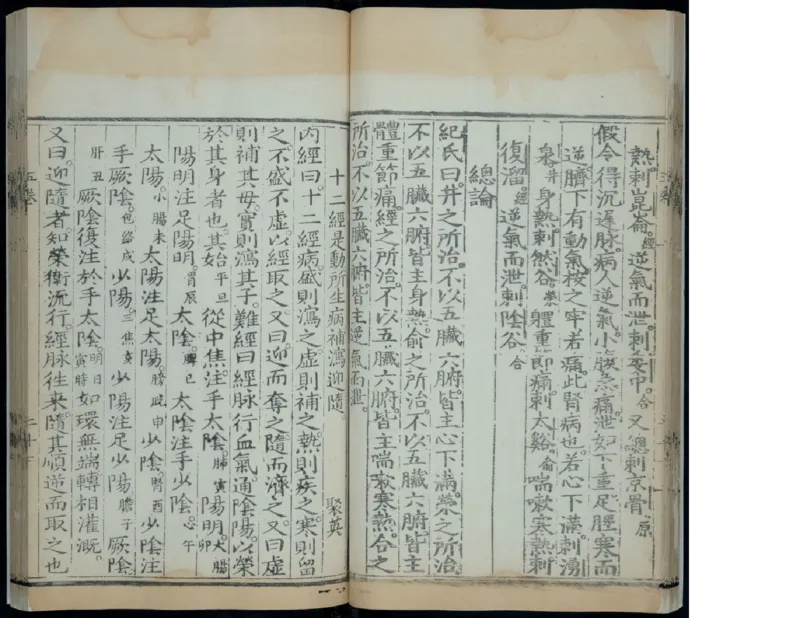 熱刺崑崙經逆氣而泄刺委中合又總刺京骨原
假令得沉遲脉病人逆氣小腹急痛泄如下重足脛寒而
逆臍下有動氣按之牢若痛此腎病也若心下滿刺湧
泉井身熱刺然谷榮體重節痛刺太谿俞喘嗽寒熱刺
復溜經逆氣而泄刺陰谷合
總論
紀氏曰井之所治不以五臟六腑皆主心下滿榮之所治
不以五臟六腑皆主身熱俞之所治不以五臟六腑皆主
體重節痛經之所治不以五臟六腑皆主喘嗽寒熱合之
所治不以五臟六腑皆主逆氣而泄
十二經是動所生病補瀉迎隨 聚英
內經曰十二經病盛則瀉之虛則補之熱則疾之寒則留
之不盛不虛以經取之又曰迎而奪之隨而濟之又曰虛
則補其母實則瀉其子難經曰經脉行血氣通陰陽以榮
於其身者也其始平旦從中焦注手太陰肺寅陽明大腸卯
陽明注足陽明胃辰太陰脾巳太陰注手少陰心午
太陽小腸未太陽注足太陽膀胱申少陰腎酉少陰注
手厥陰包絡戌少陽三焦亥少陽注足少陽膽子厥陰
肝丑厥陰復注於手太陰明日寅時如環無端轉相灌漑
又曰迎隨者知榮衛流行經脉往來隨其順逆而取之也
五卷
二十